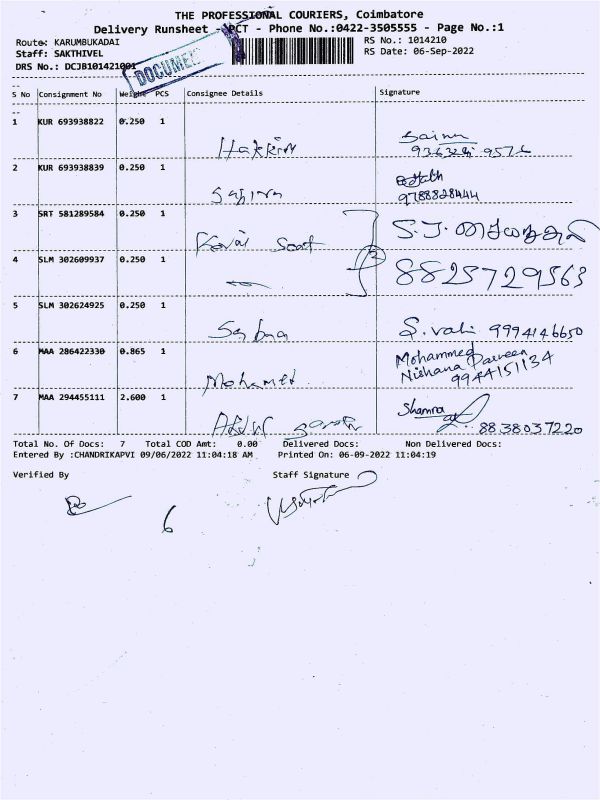 THE PROFESSIONAL COURIERS, Coimbatore
Delivery Runsheet - PCT - Phone No.:0422-3505555 - Page No.:1
Route: KARUMBUKADAI RS No.: 1014210
Staff: SAKTHIVEL RS Date: 06-Sep-2022
DRS No.: DCJB101421001
DOCUMEN
S No Consignment No Weight PCS Consignee Details Signature
1 KUR 693938822 0.250 1
Hakkim
2 KUR 693938839 0.250 1
9788828444
3 SRT 581289584 0.250 1
Kovai
4 SLM 302609937 0.250 1
2
8825729563
5 SLM 302624925 0.250 1
S. vali 9994146650
6 MAA 286422330 0.865 1
Mohamed
Mohammed
Nishana Parveen
9944151134
7 MAA 294455111 2.600 1
8838037220
Total No. Of Docs: 7 Total COD Amt: 0.00 Delivered Docs: Non Delivered Docs:
Entered By :CHANDRIKAPVI 09/06/2022 11:04:18 AM Printed On: 06-09-2022 11:04:19
Verified By Staff Signature
6